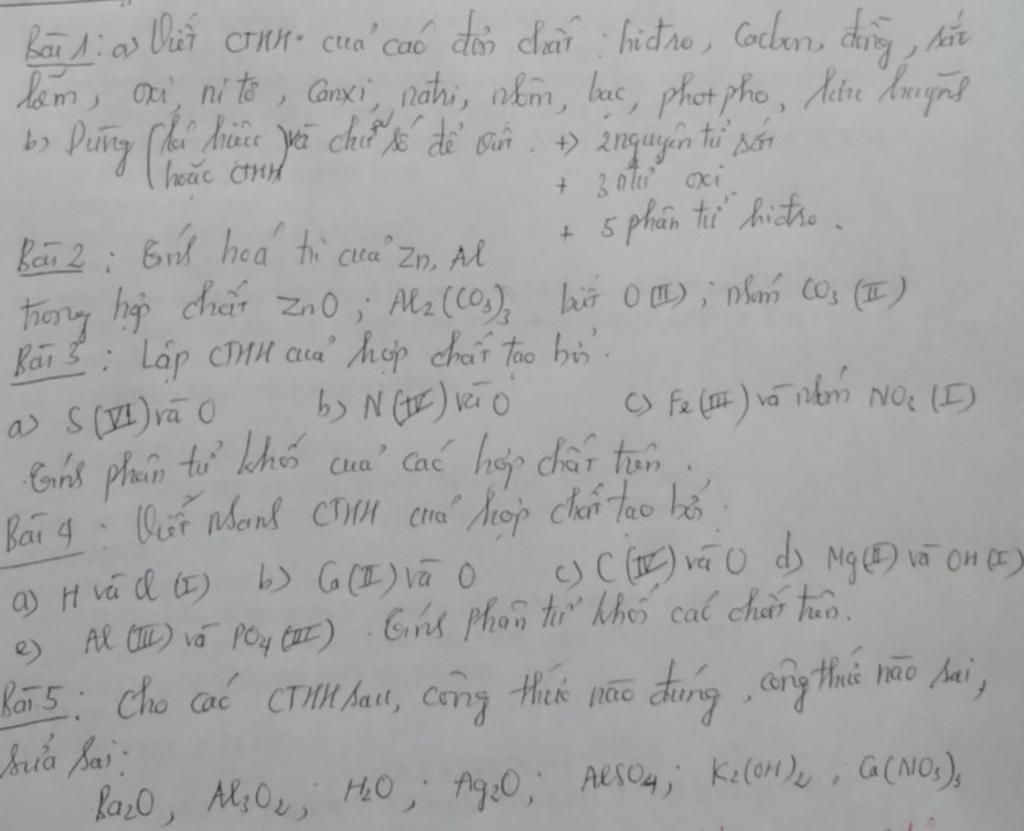 Bài 1: a) Viết CTHH của các đơn chất: hiđro, Cacbon, đồng, sắt
kẽm, oxi, nitơ, Canxi, natri, nhôm, bạc, photpho, lưu huỳnh
b) Dùng (kí hiệu hoặc CTHH) và chữ số để : +) 2 nguyên tử sắt
+ 3 ntử oxi.
+ 5 phân tử hiđro.
Bài 2: Tính hoá trị của Zn, Al
trong hợp chất ZnO; Al2(CO3)3 biết O(II); nhóm CO3 (II)
Bài 3: Lập CTHH của hợp chất tạo bởi.
a) S(VI) và O b) N(IV) và O c) Fe(III) và nhóm NO3 (I)
Tính phân tử khối của các hợp chất trên.
Bài 4: Viết nhanh CTHH của hợp chất tạo bởi.
a) H và Cl (I) b) Ca(II) và O c) C(IV) và O d) Mg(II) và OH(I)
e) Al(III) và PO4(III). Tính phân tử khối các chất trên.
Bài 5: Cho các CTHH sau, công thức nào đúng, công thức nào sai,
sửa sai:
Ba2O, Al3O2; H2O; Ag2O; AlSO4; K2(OH)2, Ca(NO3)3